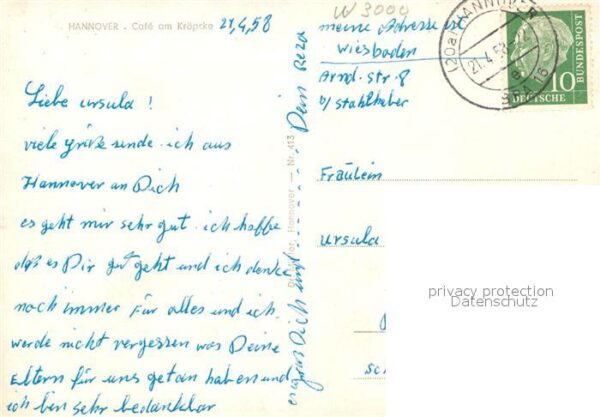 HANNOVER - Café am Kröpcke
21,4,58
Liebe ursula !
viele grüße sende ich aus
Hannover an Dich
es geht mir sehr gut. ich hoffe
daß es Dir gut geht und ich denke
noch immer für alles und ich
werde nicht vergessen was Deine
Eltern für uns getan haben und
ich bin sehr bedankbar
Dein Reza
Hannover — Nr. 413
W 3000
meine Adresse ist
Wiesbaden
Arnd-str-8
b/ Stahlheber
Fräulein
ursula
(20a) HANNOVER
21.4.58
10
DEUTSCHE
BUNDESPOST
privacy protection
Datenschutz